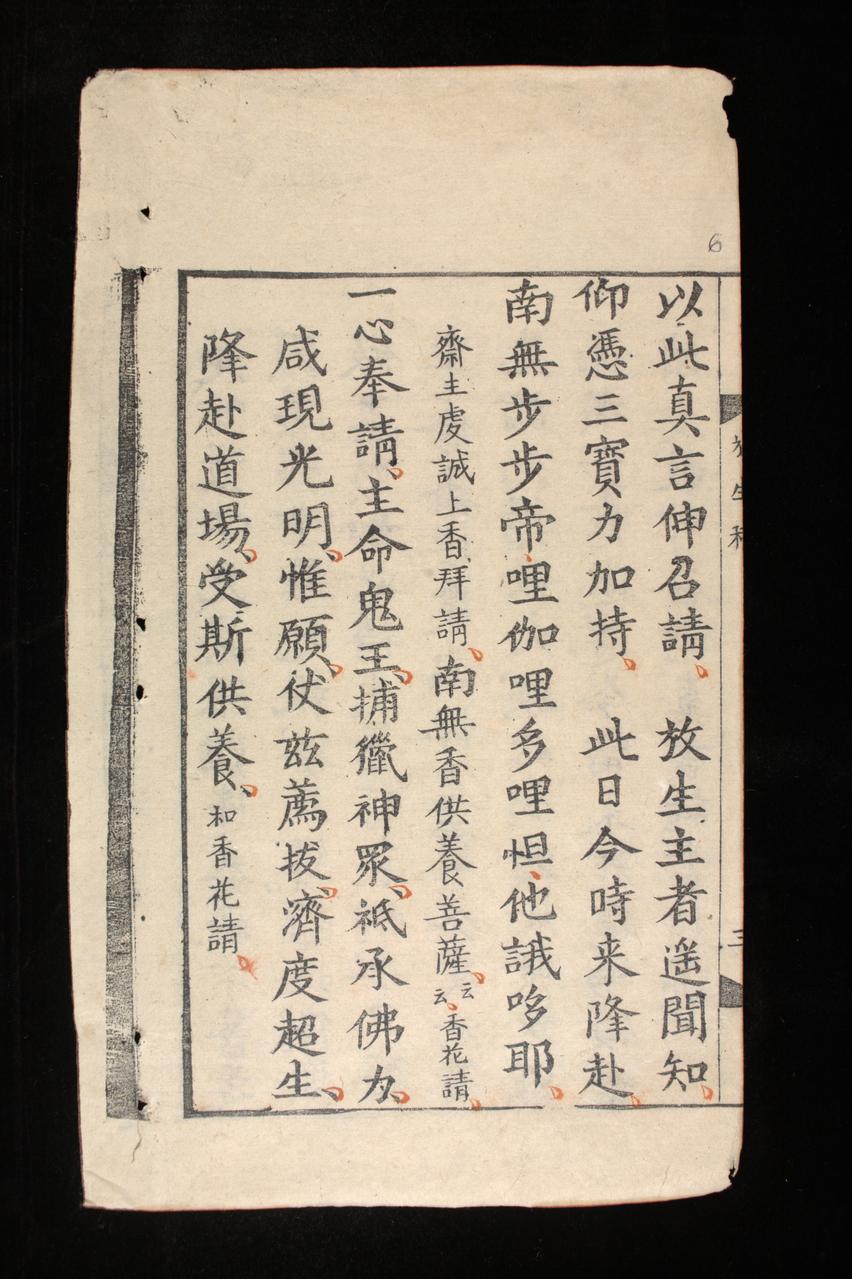 6
放生科
三
以此真言伸召請放生主者遥聞知
仰憑三寶力加持此日今時来降赴
南無步步帝哩伽哩多哩怛他誐哆耶
齋主虔誠上香拜請南無香供養菩薩云云香花請
一心奉請主命鬼王捕獵神眾祗承佛力
咸現光明惟願仗兹薦拔濟度超生
降赴道場受斯供養和香花請